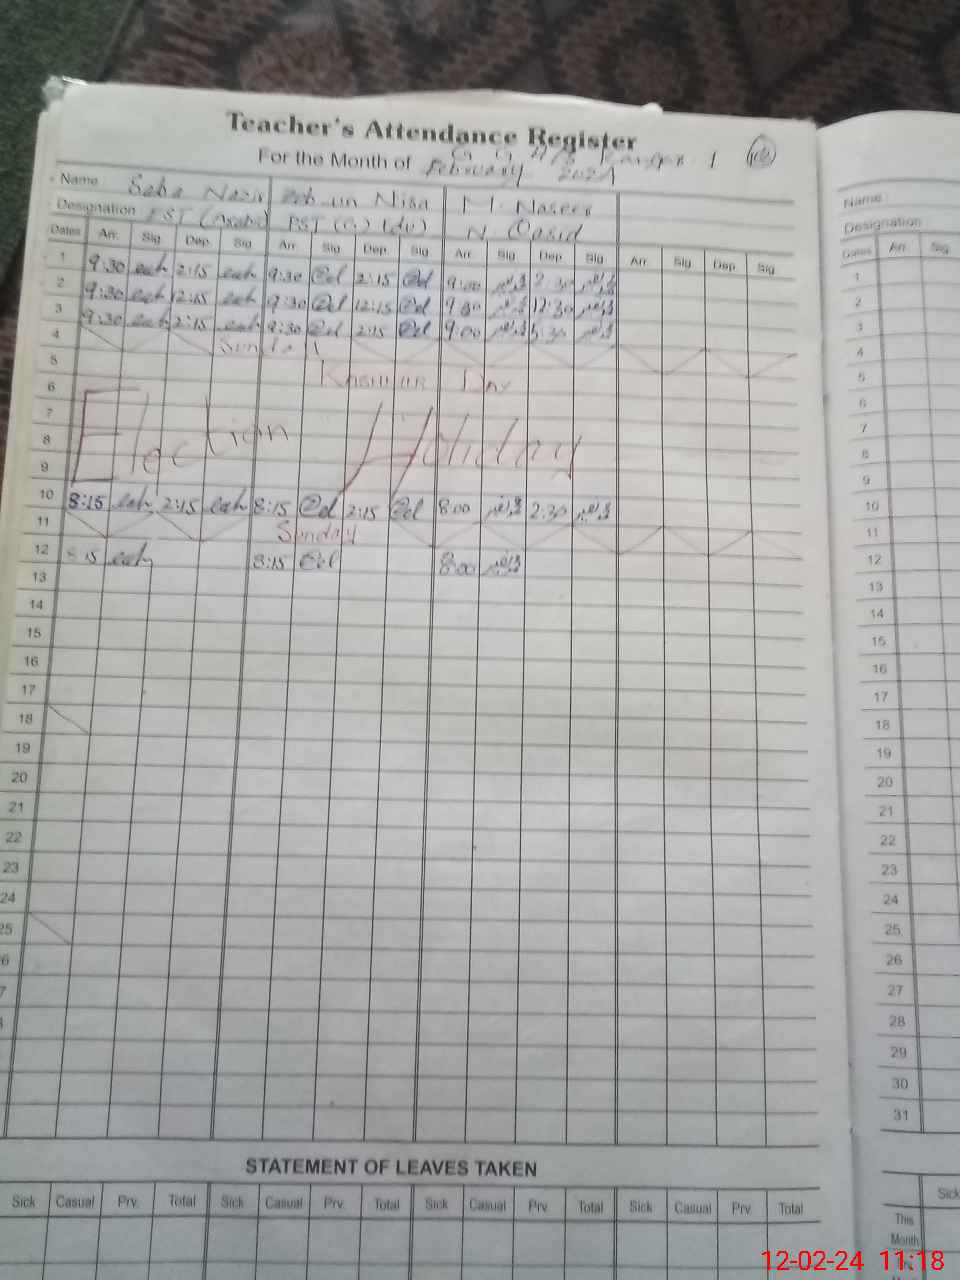 Teacher's Attendance Register
For the Month of February 2024
Name Saba Nazir un Nisa M. Naseer Name
Designation PST (G) N. Qasid Designation
Dates Arr. Sig. Dep. Sig. Arr. Sig. Dep. Sig. Arr. Sig. Dep. Sig. Arr. Sig. Dep. Sig. Dates Arr. Sig
1 9:30 2:15 9:30 2:15 9:00 2:30 1
2 9:30 12:15 9:30 12:15 9:00 12:30 2
3 9:30 2:15 9:30 2:15 9:00 3
4 Sunday 4
5 Kashmir Day 5
6 6
7 Election Holiday 7
8 8
9 9
10 8:15 2:15 8:15 2:15 8:00 2:30 10
11 Sunday 11
12 8:15 8:15 8:00 12
13 13
14 14
15 15
16 16
17 17
18 18
19 19
20 20
21 21
22 22
23 23
24 24
25 25
6 26
7 27
28
29
30
31
STATEMENT OF LEAVES TAKEN
Sick Casual Prv. Total Sick Casual Prv. Total Sick Casual Prv. Total Sick Casual Prv. Total Sick
This
Month
12-02-24 11:18